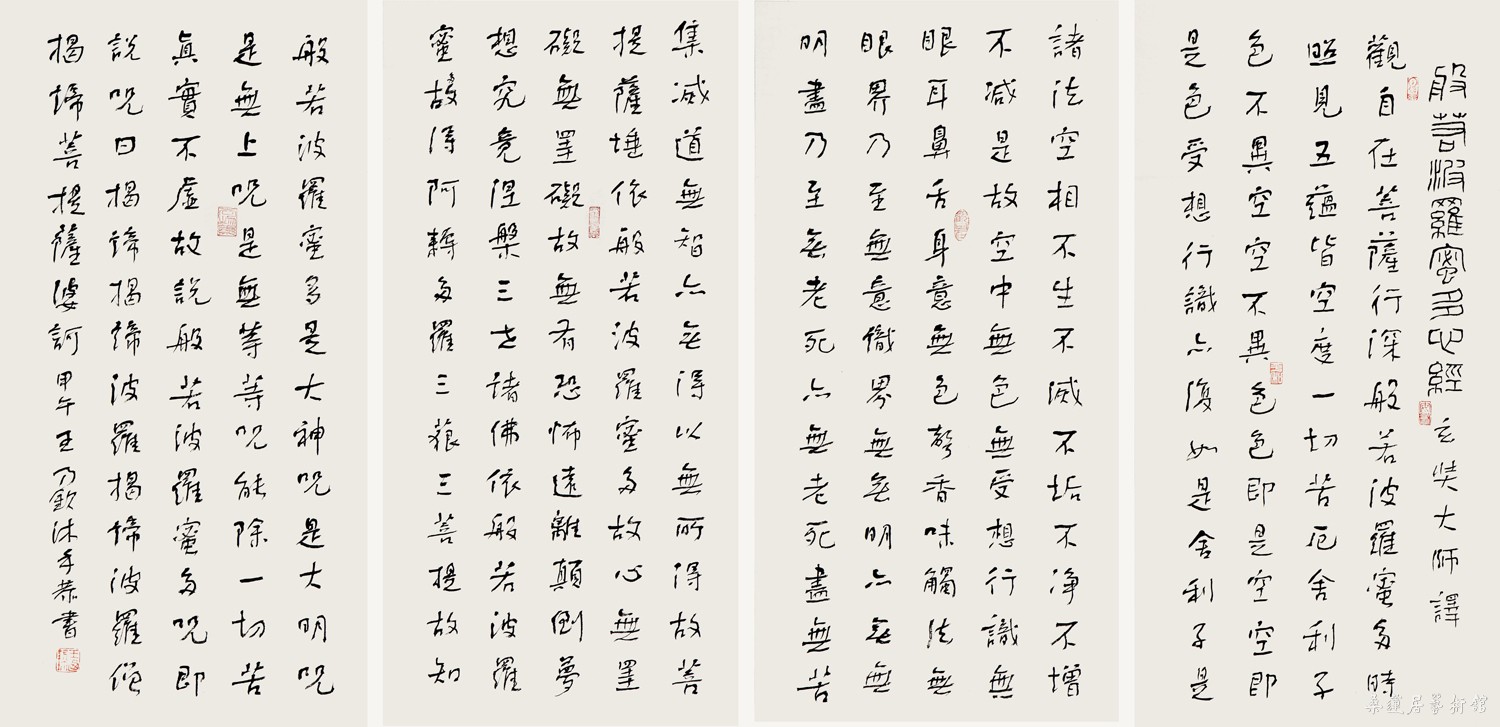 般若波羅蜜多心經 玄奘大師譯
觀自在菩薩行深般若波羅蜜多時
照見五蘊皆空度一切苦厄舍利子
色不異空空不異色色即是空空即
是色受想行識亦復如是舍利子是
諸法空相不生不滅不垢不淨不增
不減是故空中無色無受想行識無
眼耳鼻舌身意無色聲香味觸法無
眼界乃至無意識界無無明亦無無
明盡乃至無老死亦無老死盡無苦
集滅道無智亦無得以無所得故菩
提薩埵依般若波羅蜜多故心無罣
礙無罣礙故無有恐怖遠離顛倒夢
想究竟涅槃三世諸佛依般若波羅
蜜多故得阿耨多羅三藐三菩提故知
般若波羅蜜多是大神咒是大明咒
是無上咒是無等等咒能除一切苦
真實不虛故說般若波羅蜜多咒即
說咒曰揭諦揭諦波羅揭諦波羅僧
揭諦菩提薩婆訶 甲午王乃欽沐手恭書
桑蓮居藝術館